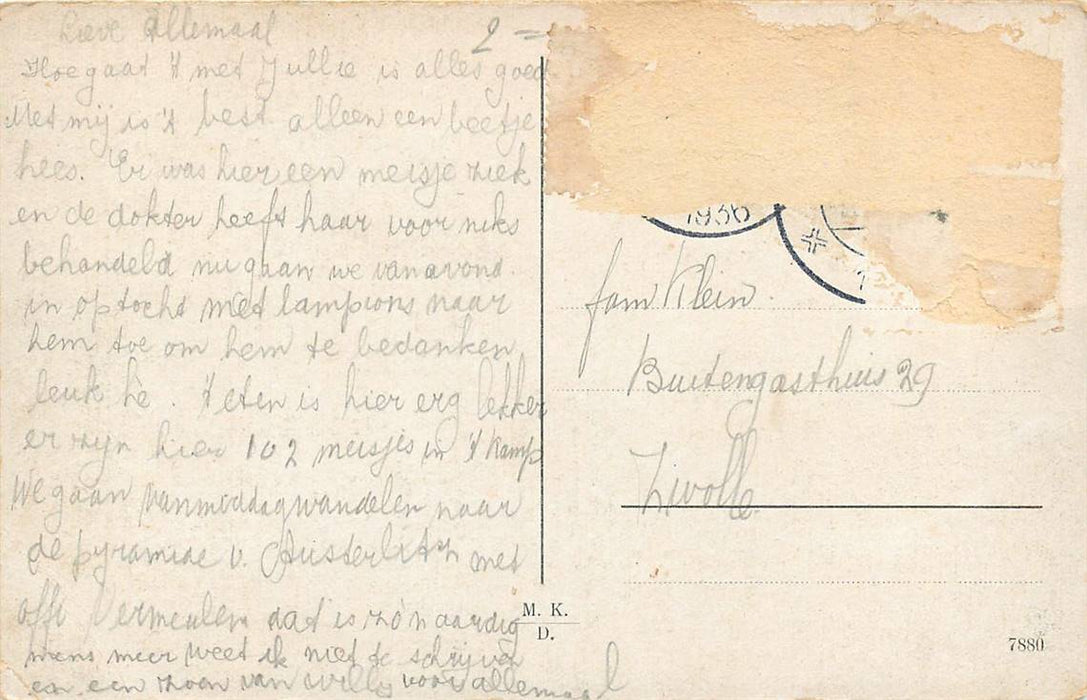 Lieve Allemaal
2 =
Hoe gaat 't met Jullie is alles goed
Met mij is 't best alleen een beetje
hees. Er was hier een meisje ziek
en de dokter heeft haar voor niks
behandeld nu gaan we vanavond.
in optocht met lampions naar
hem toe om hem te bedanken
leuk hè. 't eten is hier erg lekker
er zijn hier 102 meisjes in 't Kamp
We gaan vanmiddag wandelen naar
de pyramide v. Austerlitz met
Vermeulen dat is zo'n aardig
mens meer weet ik niet te schrijven
en een zoen van Willy voor allemaal
M. K.
D.
1936
fam Klein.
Buitengasthuis 29
Zwolle
7880